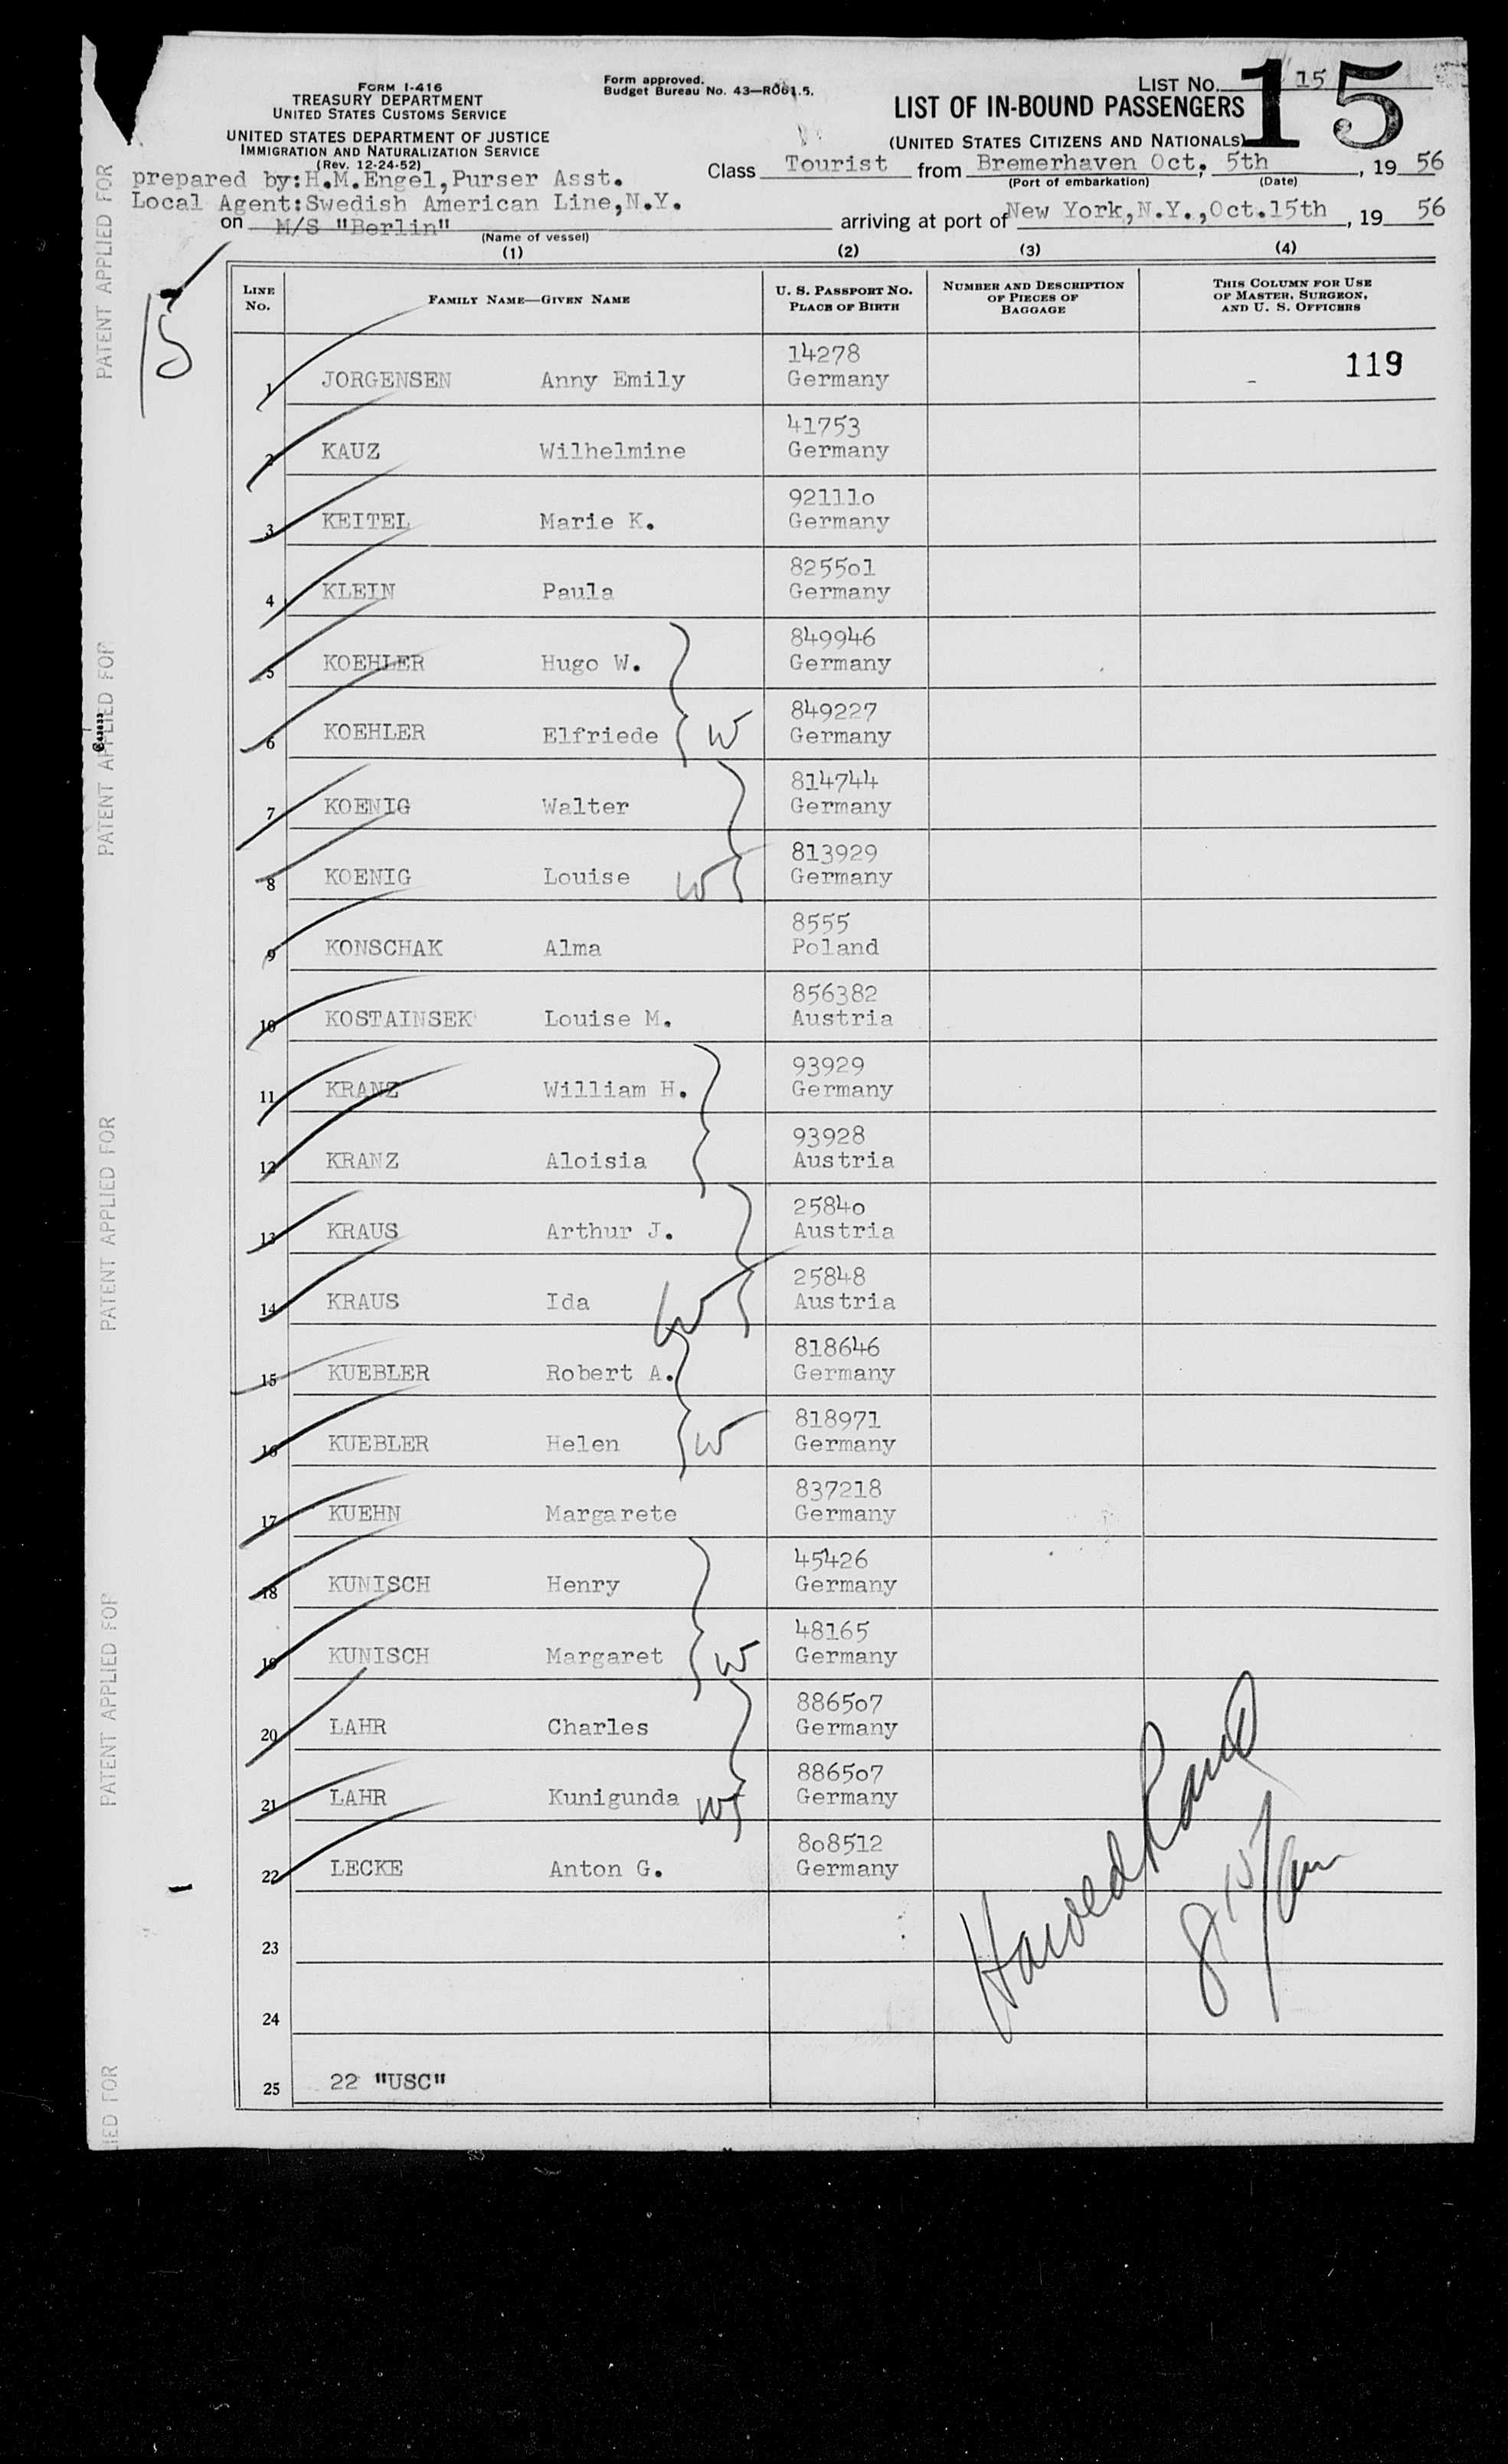 FORM I-416
TREASURY DEPARTMENT
UNITED STATES CUSTOMS SERVICE
UNITED STATES DEPARTMENT OF JUSTICE
IMMIGRATION AND NATURALIZATION SERVICE
(Rev. 12-24-52)
Form approved.
Budget Bureau No. 43—R061.5.
LIST No. 15
15
LIST OF IN-BOUND PASSENGERS
(UNITED STATES CITIZENS AND NATIONALS)
prepared by:H.M.Engel,Purser Asst.
Class Tourist from Bremerhaven Oct. 5th, 19 56
(Port of embarkation) (Date)
Local Agent:Swedish American Line,N.Y.
on M/S "Berlin"
(Name of vessel)
arriving at port of New York,N.Y.,Oct.15th, 19 56
(1) (2) (3) (4)
LINE No. FAMILY NAME—GIVEN NAME U. S. PASSPORT No. PLACE OF BIRTH NUMBER AND DESCRIPTION OF PIECES OF BAGGAGE THIS COLUMN FOR USE OF MASTER, SURGEON, AND U. S. OFFICERS
15
14278 119
1 JORGENSEN Anny Emily Germany
41753
2 KAUZ Wilhelmine Germany
92111o
3 KEITEL Marie K. Germany
8255o1
4 KLEIN Paula Germany
849946
5 KOEHLER Hugo W. Germany
849227
6 KOEHLER Elfriede W Germany
814744
7 KOENIG Walter Germany
813929
8 KOENIG Louise W Germany
8555
9 KONSCHAK Alma Poland
856382
10 KOSTAINSEK Louise M. Austria
93929
11 KRANZ William H. Germany
93928
12 KRANZ Aloisia Austria
2584o
13 KRAUS Arthur J. Austria
25848
14 KRAUS Ida W Austria
818646
15 KUEBLER Robert A. Germany
818971
16 KUEBLER Helen W Germany
837218
17 KUEHN Margarete Germany
45426
18 KUNISCH Henry Germany
48165
19 KUNISCH Margaret W Germany
8865o7
20 LAHR Charles Germany
8865o7
21 LAHR Kunigunda W Germany
8o8512
22 LECKE Anton G. Germany
23
24
25 22 "USC"
Harold
8 15/am
PATENT APPLIED FOR
PATENT APPLIED FOR
PATENT APPLIED FOR
PATENT APPLIED FOR
IED FOR